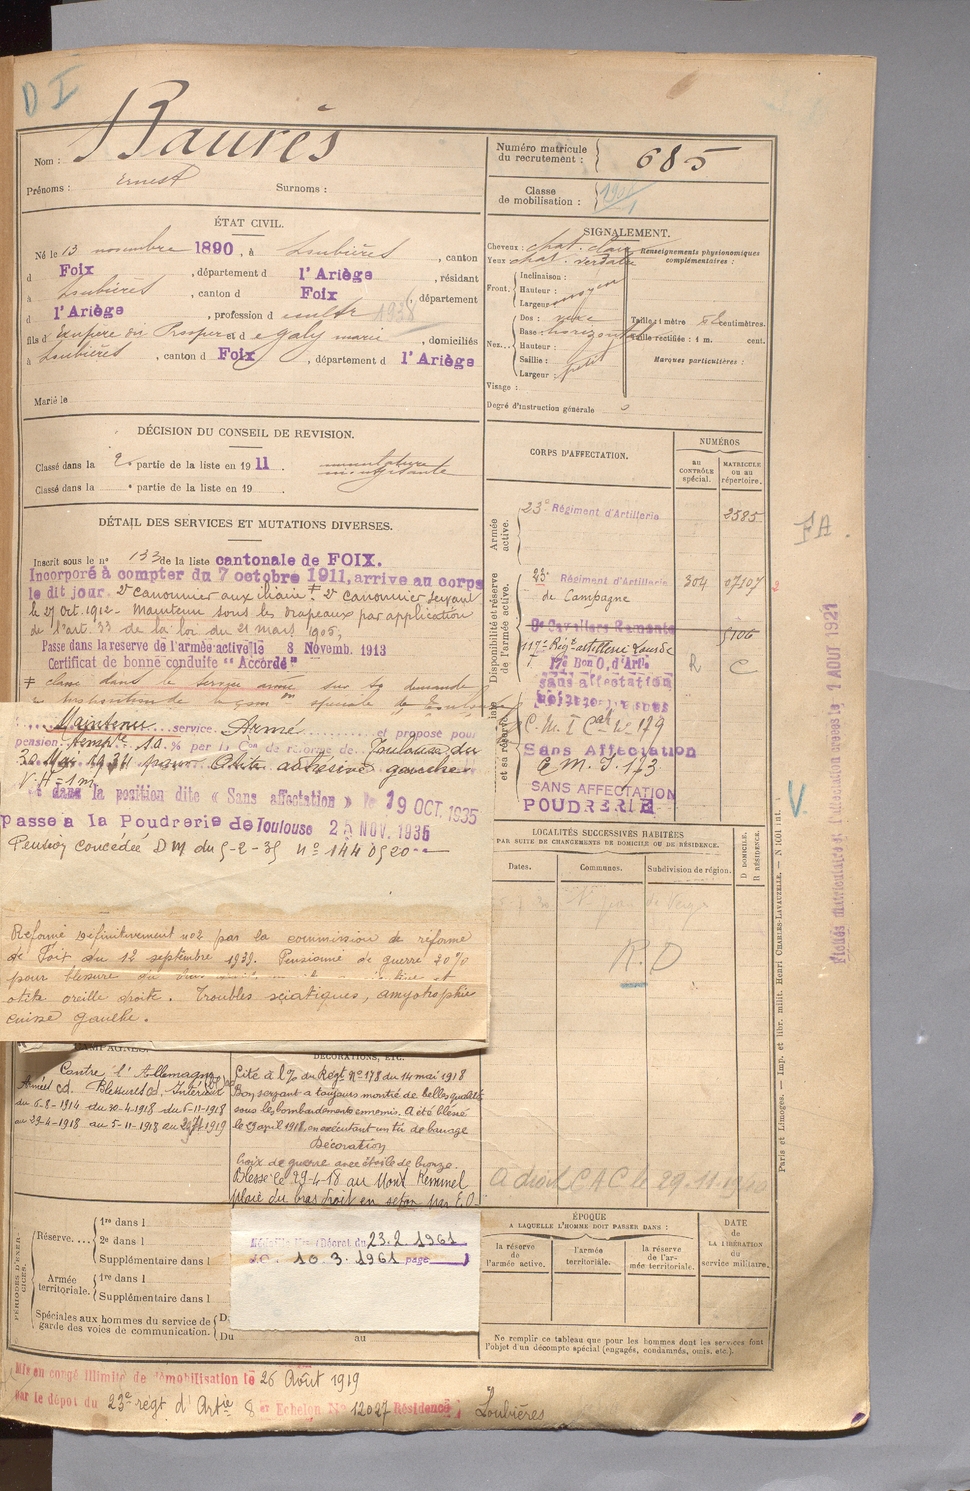 D I
Nom : Baurès
Prénoms : Ernest Surnoms :
Numéro matricule du recrutement : 685
Classe de mobilisation :
ÉTAT CIVIL.
Né le 13 novembre 1890, à Loubières, canton
d Foix, département d l'Ariège, résidant
à Loubières, canton d Foix, département
d l'Ariège, profession d cultr 1938
fils d' Exupère et d e Galy marie, domiciliés
à Loubières, canton d Foix, département d l'Ariège
Marié le
SIGNALEMENT.
Cheveux : chat. clair
Yeux chat. verdatre
Renseignements physionomiques complémentaires :
Front. Inclinaison :
Hauteur :
Largeur moyen
Nez... Dos :
Base : horizontale
Hauteur :
Saillie :
Largeur : petit
Taille : 1 mètre centimètres.
Taille rectifiée : 1 m. cent.
Marques particulières :
Visage :
Degré d'instruction générale
DÉCISION DU CONSEIL DE REVISION.
Classé dans la 2e partie de la liste en 19 11.
Classé dans la partie de la liste en 19 .
DÉTAIL DES SERVICES ET MUTATIONS DIVERSES.
Inscrit sous le n° 133 de la liste cantonale de FOIX.
Incorporé à compter du 7 octobre 1911, arrivé au corps
le dit jour. 2e canonnier auxiliaire ‡ 2e canonnier servant
le 27 oct. 1912 - Maintenu sous les drapeaux par application
de l'art. 33 de la loi du 21 mars 1905,
Passé dans la réserve de l'armée active le 8 Novemb. 1913
Certificat de bonne conduite "Accordé"
‡ classé dans le service armé sur sa demande
Maintenu service Armé et proposé pour
pension temp. 10 % par la Con de réforme de Toulouse du
30 Mai 1934 pour Otite gauche
V.H = 1 m
dans la position dite « Sans affectation » le 19 OCT. 1935
passe à la Poudrerie de Toulouse 25 NOV. 1935
Pension concédée DM du 5-2-35 n° 1440520
Réformé définitivement n°2 par la commission de réforme
de Foix du 12 septembre 1939. Pensionné de guerre 20%
pour blessure du bras
otite oreille droite. Troubles sciatiques, amyotrophie
cuisse gauche.
CORPS D'AFFECTATION.
NUMÉROS
au CONTRÔLE spécial.
MATRICULE ou au répertoire.
Armée active.
23e Régiment d'Artillerie 2585
Disponibilité et réserve de l'armée active.
23e Régiment d'Artillerie 304 07107
de Campagne
Cavaliers Remonte 5106
117e Régt artillerie Lourde R C
17e Bon O. d'Artie
sans affectation
C. M. I Cat n° 179
Sans Affectation
C M. I. 173
SANS AFFECTATION
POUDRERIE
FA.
Affectation 1 AOUT 1921
V
LOCALITÉS SUCCESSIVES HABITÉES
PAR SUITE DE CHANGEMENTS DE DOMICILE OU DE RÉSIDENCE.
Dates. Communes. Subdivision de région.
D DOMICILE. R RÉSIDENCE.
R. D
A droit C A C le 29.11.1940
CAMPAGNES.
Contre l'Allemagne
Armées cd. Blessures cd. Intérieur
du 6-8-1914 du 30-4-1918 du 6-11-1918
au 29-4-1918 au 5-11-1918 au 1919
DÉCORATIONS, ETC.
Cité à l'O/ du Régt N° 178 du 14 mai 1918
Bon servant a toujours montré de belles qualités
sous les bombardements ennemis. A été blessé
le 29 avril 1918, en exécutant un tir de barrage
Décoration
Croix de guerre avec étoile de bronze.
Blessé le 29-4-18 au Mont Kemmel
plaie du bras droit en seton par E.O.
Médaille Décret du 23.2.1961
J.O. 10.3.1961 page
PÉRIODES D'EXERCICES.
Réserve.... 1re dans l
2e dans l
Supplémentaire dans l
Armée territoriale. 1re dans l
Supplémentaire dans l
Spéciales aux hommes du service de garde des voies de communication. Du
Du au
ÉPOQUE
A LAQUELLE L'HOMME DOIT PASSER DANS :
la réserve de l'armée active.
l'armée territoriale.
la réserve de l'armée territoriale.
DATE de LA LIBÉRATION du service militaire.
Ne remplir ce tableau que pour les hommes dont les services font l'objet d'un décompte spécial (engagés, condamnés, omis, etc.).
Paris et Limoges. — Imp. et libr. milit. Henri CHARLES-LAVAUZELLE.
Mis en congé illimité de démobilisation le 26 Août 1919
par le dépôt du 23e régt d'Artie 8e Echelon N° 12027 Résidence Loubières